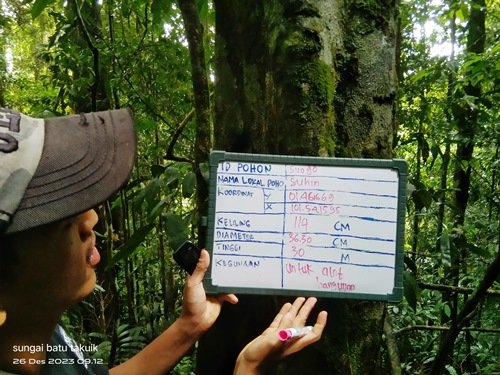 ID POHON
NAMA LOKAL POHO Suhin
KOORDINAT Y
X 101.541595
KELILING 114 CM
DIAMETER 36.30 CM
TINGGI 30 M
KEGUNAAN Untuk alat
bangunan
sungai batu takuik
26 Des 2023 09.12